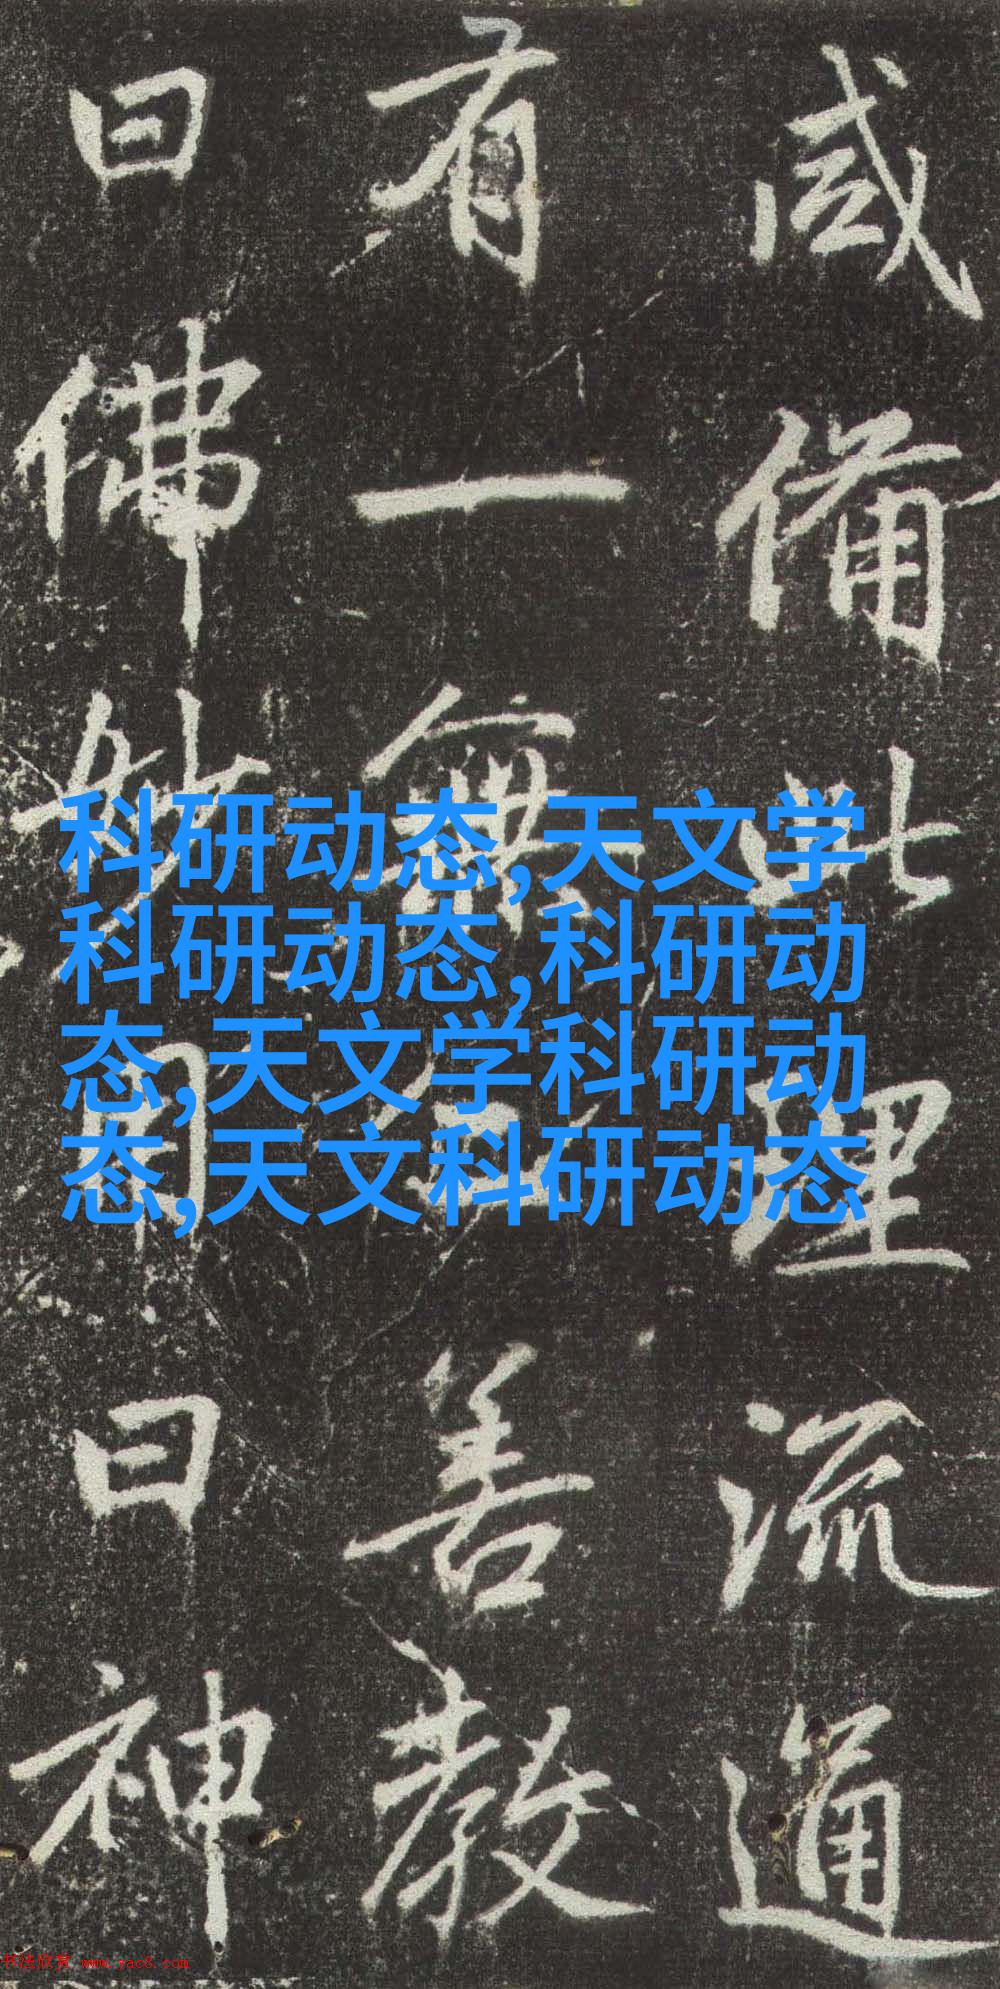 咸備此理流通
有一無二善教
曰佛妙用曰神
科研动态,天文学
科研动态,科研动
态,天文学科研动
态,天文科研动态
书法欣赏 www.yac8.com